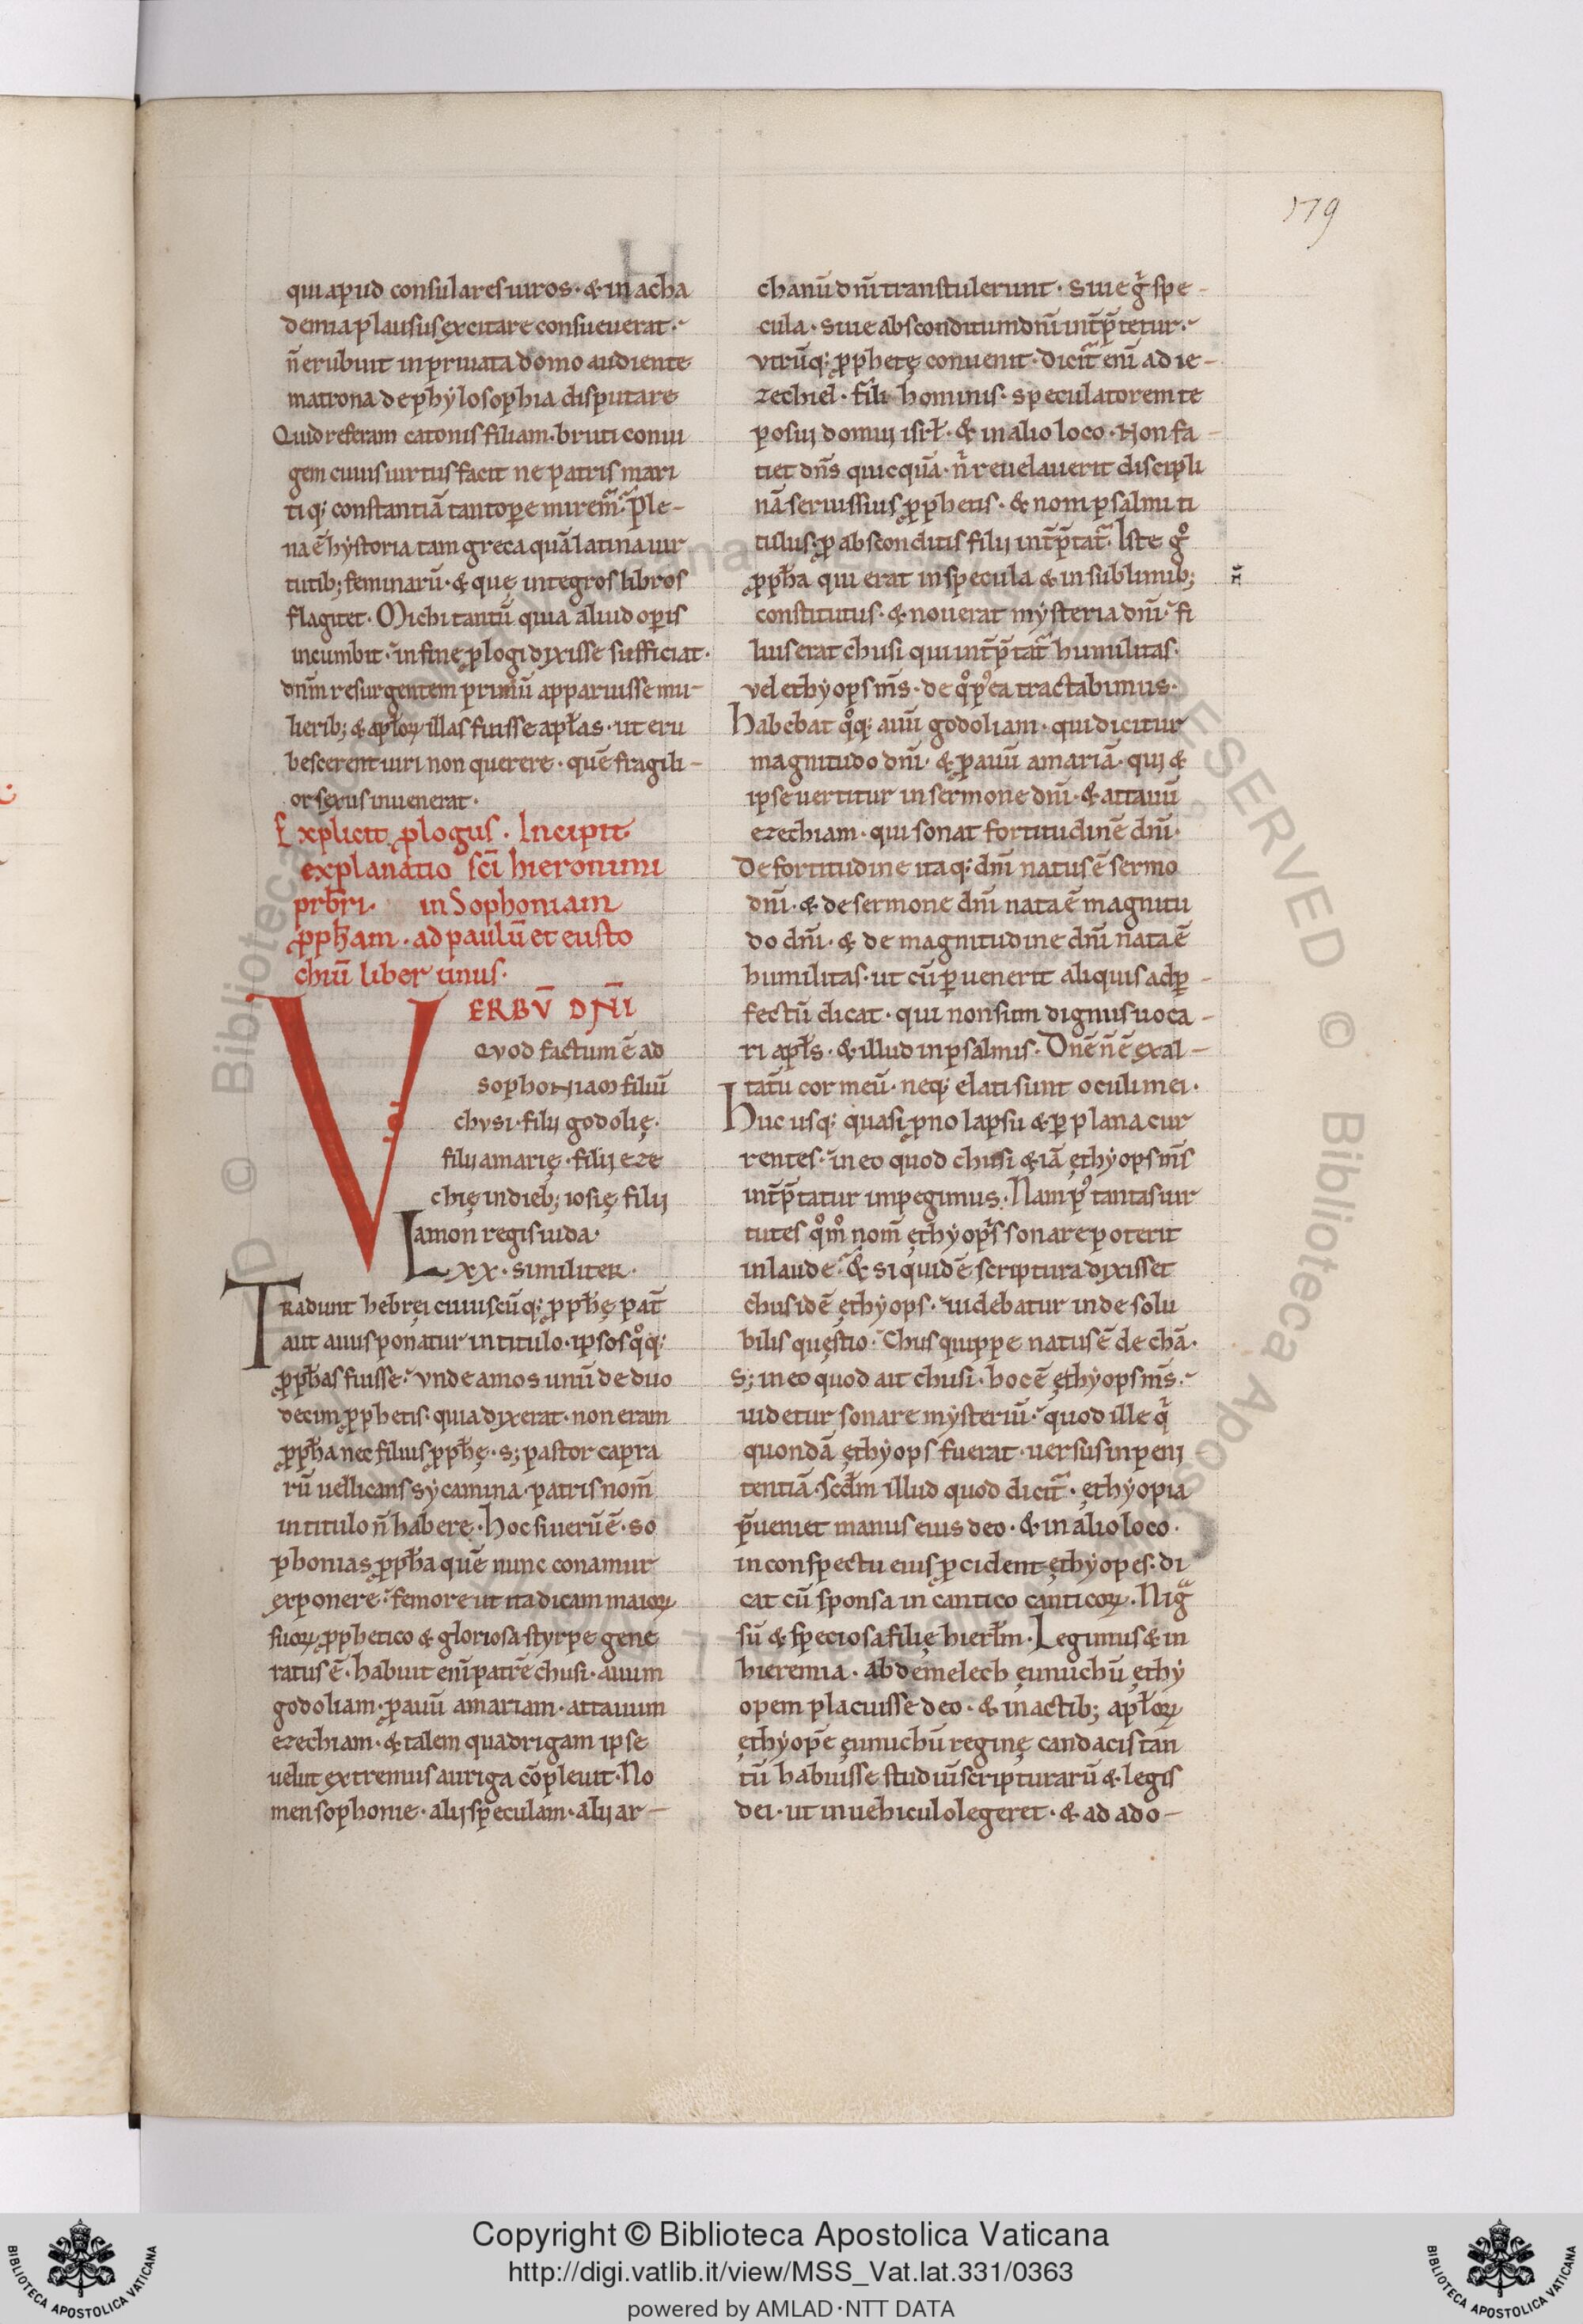 179
qui apud consulares uiros · & in acha
demia plausus excitare consueuerat ·
n̄ erubuit in priuata domo audiente
matrona de phẏlosophia disputare
Quid referam catonis filiam · bruti coniu
gem cuius uirtus facit ne patris mari
tiq; constantiā tantopere miremᷓ · Ple-
na ē hẏstoria tam greca quā latina uir
tutib; feminarū · & quę integros libros
flagitet · Michi tantū quia aliud op̱is
incumbit · in fine ꝓlogi dixisse sufficiat ·
dn̄m resurgentem primū apparuisse mu-
lierib; & apɫoꝝ illas fuisse apɫas · ut eru
bescerent uiri non querere · quē fragili-
or sexus inuenerat ·
Explicit ꝓlogus · Incipit
explanatio sc̄i hieronimi
prb̄ri · in Sophoniam
ꝓph̄am · ad paulū et eusto
chiū liber unus ·
VERBV̄ DN̄I
Qvod factum ē ad
sophoniam filiū
chvsi · filij godolię ·
filij amarię · filij eze
chię in dieb; iosię filij
amon regis iuda ·
Lxx · similiter ·
Tradunt hebręi cuiuscūq; ꝓph̄ę pat̄
aut auus ponatur in titulo · ipsos qͦq;
ꝓph̄as fuisse · vnde amos unū de duo
decim ꝓphetis · quia dixerat · non eram
ꝓph̄a nec filius ꝓph̄ę · s; pastor capra
rū uellicans sẏcamina · patris nom̄
in titulo n̄ habere · Hoc si uerū ē · so
phonias ꝓph̄a quē nunc conamur
exponere · femore ut ita dicam maioꝝ
suoꝝ ꝓphetico & gloriosa stẏrpe gene
ratus ē · habuit eni̅ patrē chusi · auum
godoliam · ꝓauū amariam · attauum
ezechiam · & talem quadrigam ipse
uelut extremus auriga cōpleuit · No
men sophonie · alij speculam · alij ar-
chanū dn̄i transtulerunt · Siue gͥ spe-
cula · siue absconditum dn̄i int̄p̄tetur ·
vtrūq; ꝓphetę conuenit · dicitᷓ eni̅ ad ie-
zechiel · fili hominis · speculatorem te
posui domui isrɫ · & in alio loco · Non fa-
tiet dn̄s quicquā · nͥ reuelauerit discipli
nā seruis suis ꝓphetis · & nom̄ psalmi ti
tulus · ꝓ absconditis filij int̄p̄tatᷓ · Iste gͦ
ꝓph̄a qui erat in specula & in sublimib;
constitutus · & nouerat mẏsteria dn̄i · fi
lius erat chusi qui int̄p̄tatᷓ humilitas ·
vel ethẏops m̄s · de qͦ pꝰea tractabimus ·
Habebat qͦq; auū godoliam · qui dicitur
magnitudo dn̄i · & ꝓauū amariā · qui &
ipse uertitur in sermone dn̄i · & attauū
ezechiam · qui sonat fortitudinē dn̄i ·
De fortitudine itaq; dn̄i natus ē sermo
dn̄i · & de sermone dn̄i nata ē magnitu
do dn̄i · & de magnitudine dn̄i nata ē
humilitas · ut cū ꝑuenerit aliquis ad ꝑ-
fectū dicat · qui non sum dignus uoca-
ri apɫs · & illud in psalmis · Dn̄e n̄ ē exal-
tatū cor meū · neq; elati sunt oculi mei ·
Huc usq; quasi ꝓno lapsu & ꝑ plana cur
rentes · in eo quod chusi & iā ęthẏops m̄s
int̄p̄tatur impegimus · Nam pꝰ tantas uir
tutes qͦmͦ nom̄ ęthẏopͥs sonare poterit
in laude · & siquidē scriptura dixisset
chus idē ęthẏops · uidebatur inde solu
bilis quęstio · Chus quippe natus ē de chā ·
S; in eo quod ait chusi · hoc ē ęthẏops m̄s ·
uidetur sonare mẏsteriū · quod ille qͥ
quondā ęthẏops fuerat · uersus in peni
tentiā · scd̄m illud quod dicitᷓ · ęthẏopia
p̄ueniet manus eius deo · & in alio loco ·
in conspectu eius ꝓcident ęthẏopes · di
cat cū sponsa in cantico canticoꝝ · Nigᷓ
sū & speciosa filię hierɫm · Legimus & in
hieremia · abdemelech ęunuchū ęthẏ
opem placuisse deo · & in actib; apɫoꝝ
ęthẏopē ęunuchū reginę candacis tan
tū habuisse studiū scripturarū & legis
dei · ut in uehiculo legeret · & ad ado-
Copyright © Biblioteca Apostolica Vaticana
http://digi.vatlib.it/view/MSS_Vat.lat.331/0363
powered by AMLAD·NTT DATA
BIBLIOTECA APOSTOLICA VATICANA
BIBLIOTECA APOSTOLICA VATICANA